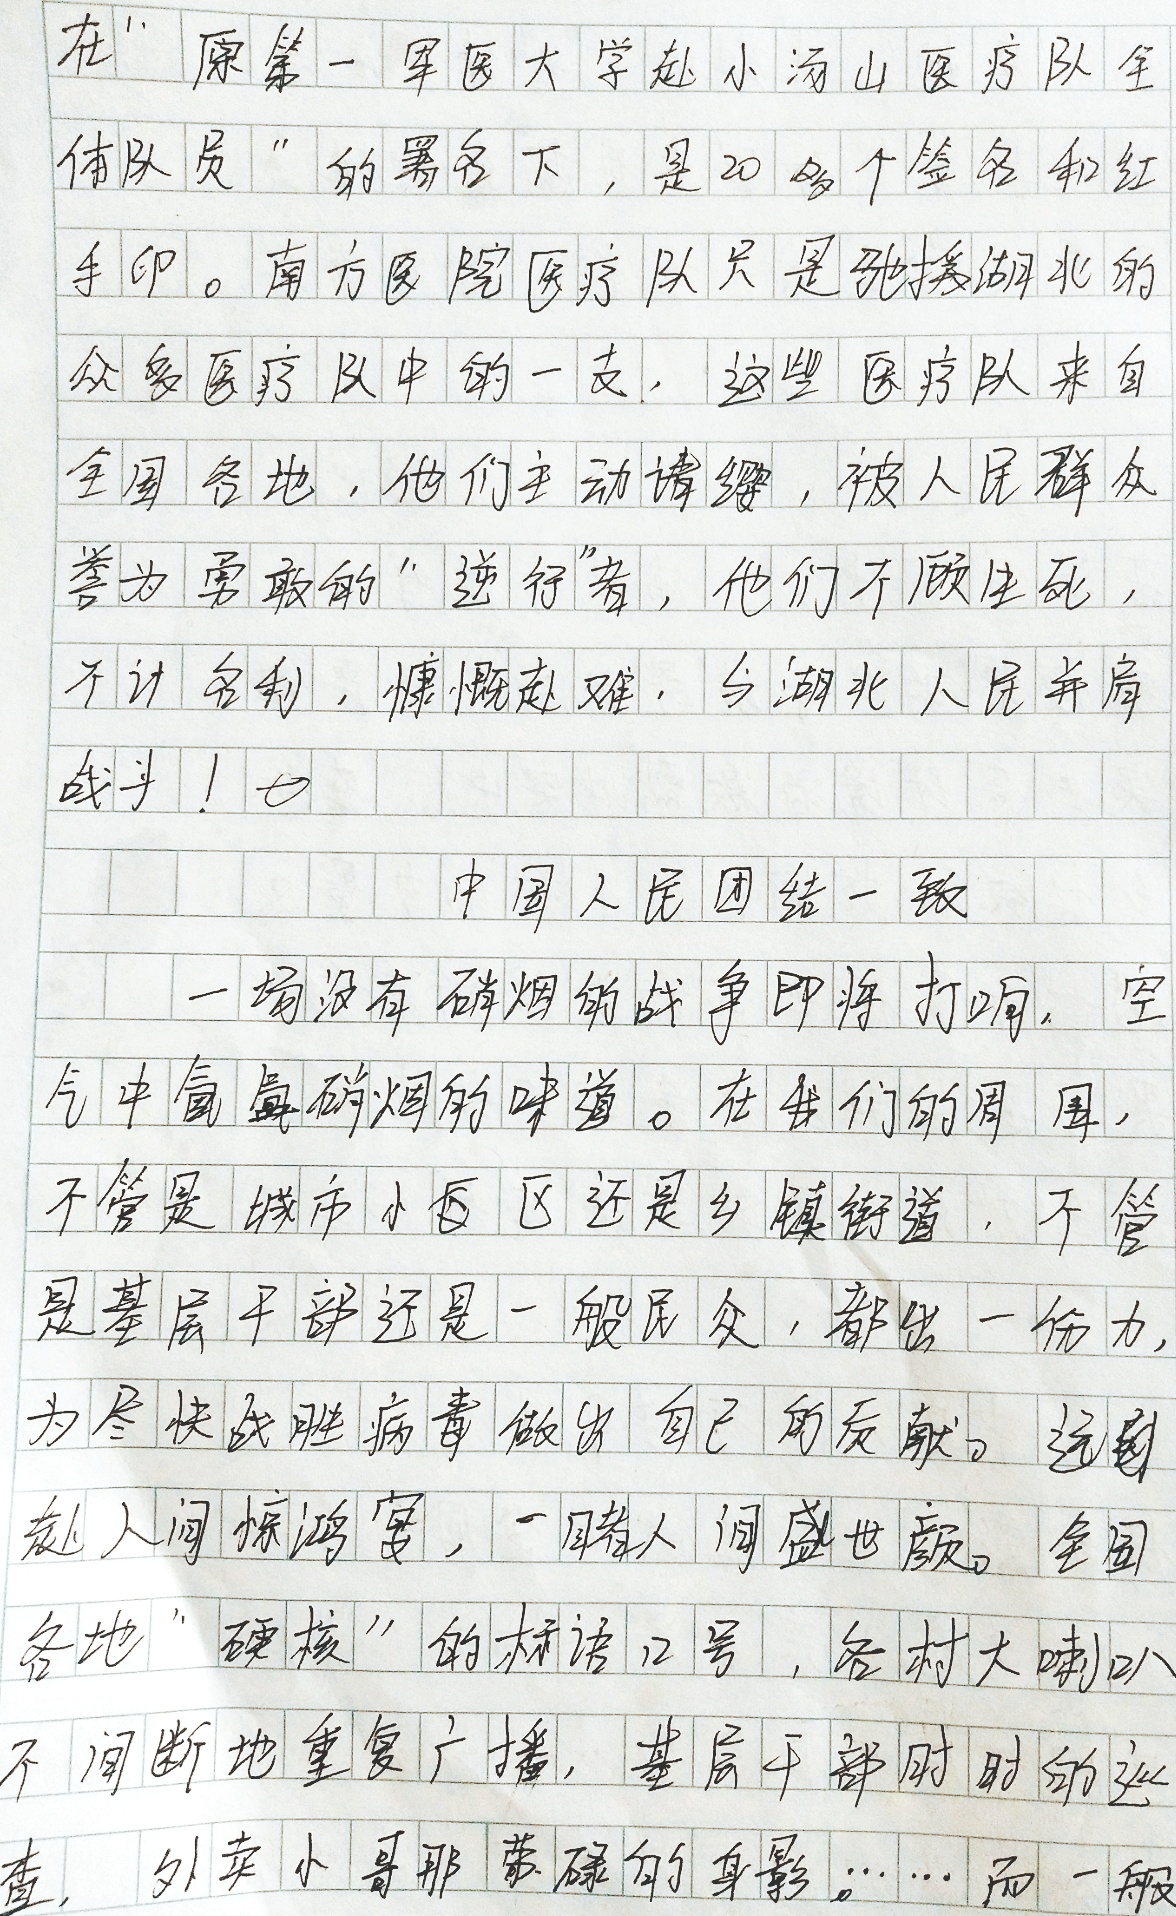 在“原第一军医大学赴小汤山医疗队全
体队员”的署名下，是20多个签名和红
手印。南方医院医疗队只是驰援湖北的
众多医疗队中的一支，这些医疗队来自
全国各地，他们主动请缨，被人民群众
誉为勇敢的“逆行”者，他们不顾生死，
不计名利，慷慨赴难，与湖北人民并肩
战斗！
中国人民团结一致
一场没有硝烟的战争即将打响，空
气中氤氲硝烟的味道。在我们的周围，
不管是城市小区还是乡镇街道，不管
是基层干部还是一般民众，都出一份力，
为尽快战胜病毒做出自己的贡献。远
赴人间惊鸿宴，一睹人间盛世颜。全国
各地“硬核”的标语口号，各村大喇叭
不间断地重复广播，基层干部时时的巡
查，外卖小哥那荣碌的身影。……而一般